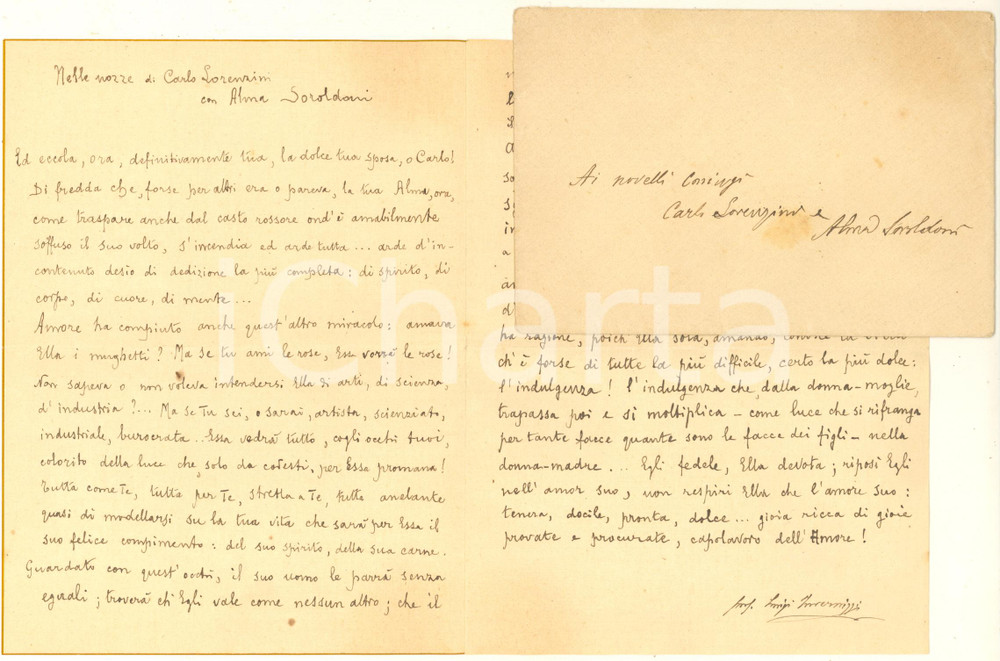 Nelle nozze di Carlo Lorenzini
con Alma Soroldoni
Ed eccola, ora, definitivamente tua, la dolce tua sposa, o Carlo!
Di fredda che, forse per altri era o pareva, la tua Alma, ora,
come traspare anche dal casto rossore ond'è amabilmente
soffuso il suo volto, s'incendia ed arde tutta... arde d'in-
contenuto desio di dedizione la più completa: di spirito, di
corpo, di cuore, di mente...
Amore ha compiuto anche quest'altro miracolo: amava
Ella i mughetti? Ma se tu ami le rose, Essa vorrà le rose!
Non sapeva o non voleva intendersi Ella di arti, di scienza,
d'industria?... Ma se Tu sei, o sarai, artista, scienziato,
industriale, burocrata... Essa vedrà tutto, cogli occhi tuoi,
colorito della luce che solo da codesti, per Essa promana!
Tutta come Te, tutta per Te, stretta a Te, tutta anelante
quasi di modellarsi su la tua vita che sarà per Essa il
suo felice compimento: del suo spirito, della sua carne.
Guardato con quest'occhi, il suo uomo le parrà senza
eguali; troverà ch'Egli vale come nessun altro; che il
Ai novelli Coniugi
Carlo Lorenzini e
Alma Soroldoni
ha ragione, poich'Ella sola, amando,
ch'è forse di tutte la più difficile, certo la più dolce:
l'indulgenza! l'indulgenza che, dalla donna-moglie,
trapassa poi e si moltiplica - come luce che si rifranga
per tante facce quante sono le facce dei figli - nella
donna-madre... Egli fedele, Ella devota; riposi Egli
nell'amor suo, non respiri Ella che l'amore suo:
tenera, docile, pronta, dolce... gioia ricca di gioie
provate e procurate, capolavoro dell'Amore!
prof. Luigi Invernizzi
iCharta